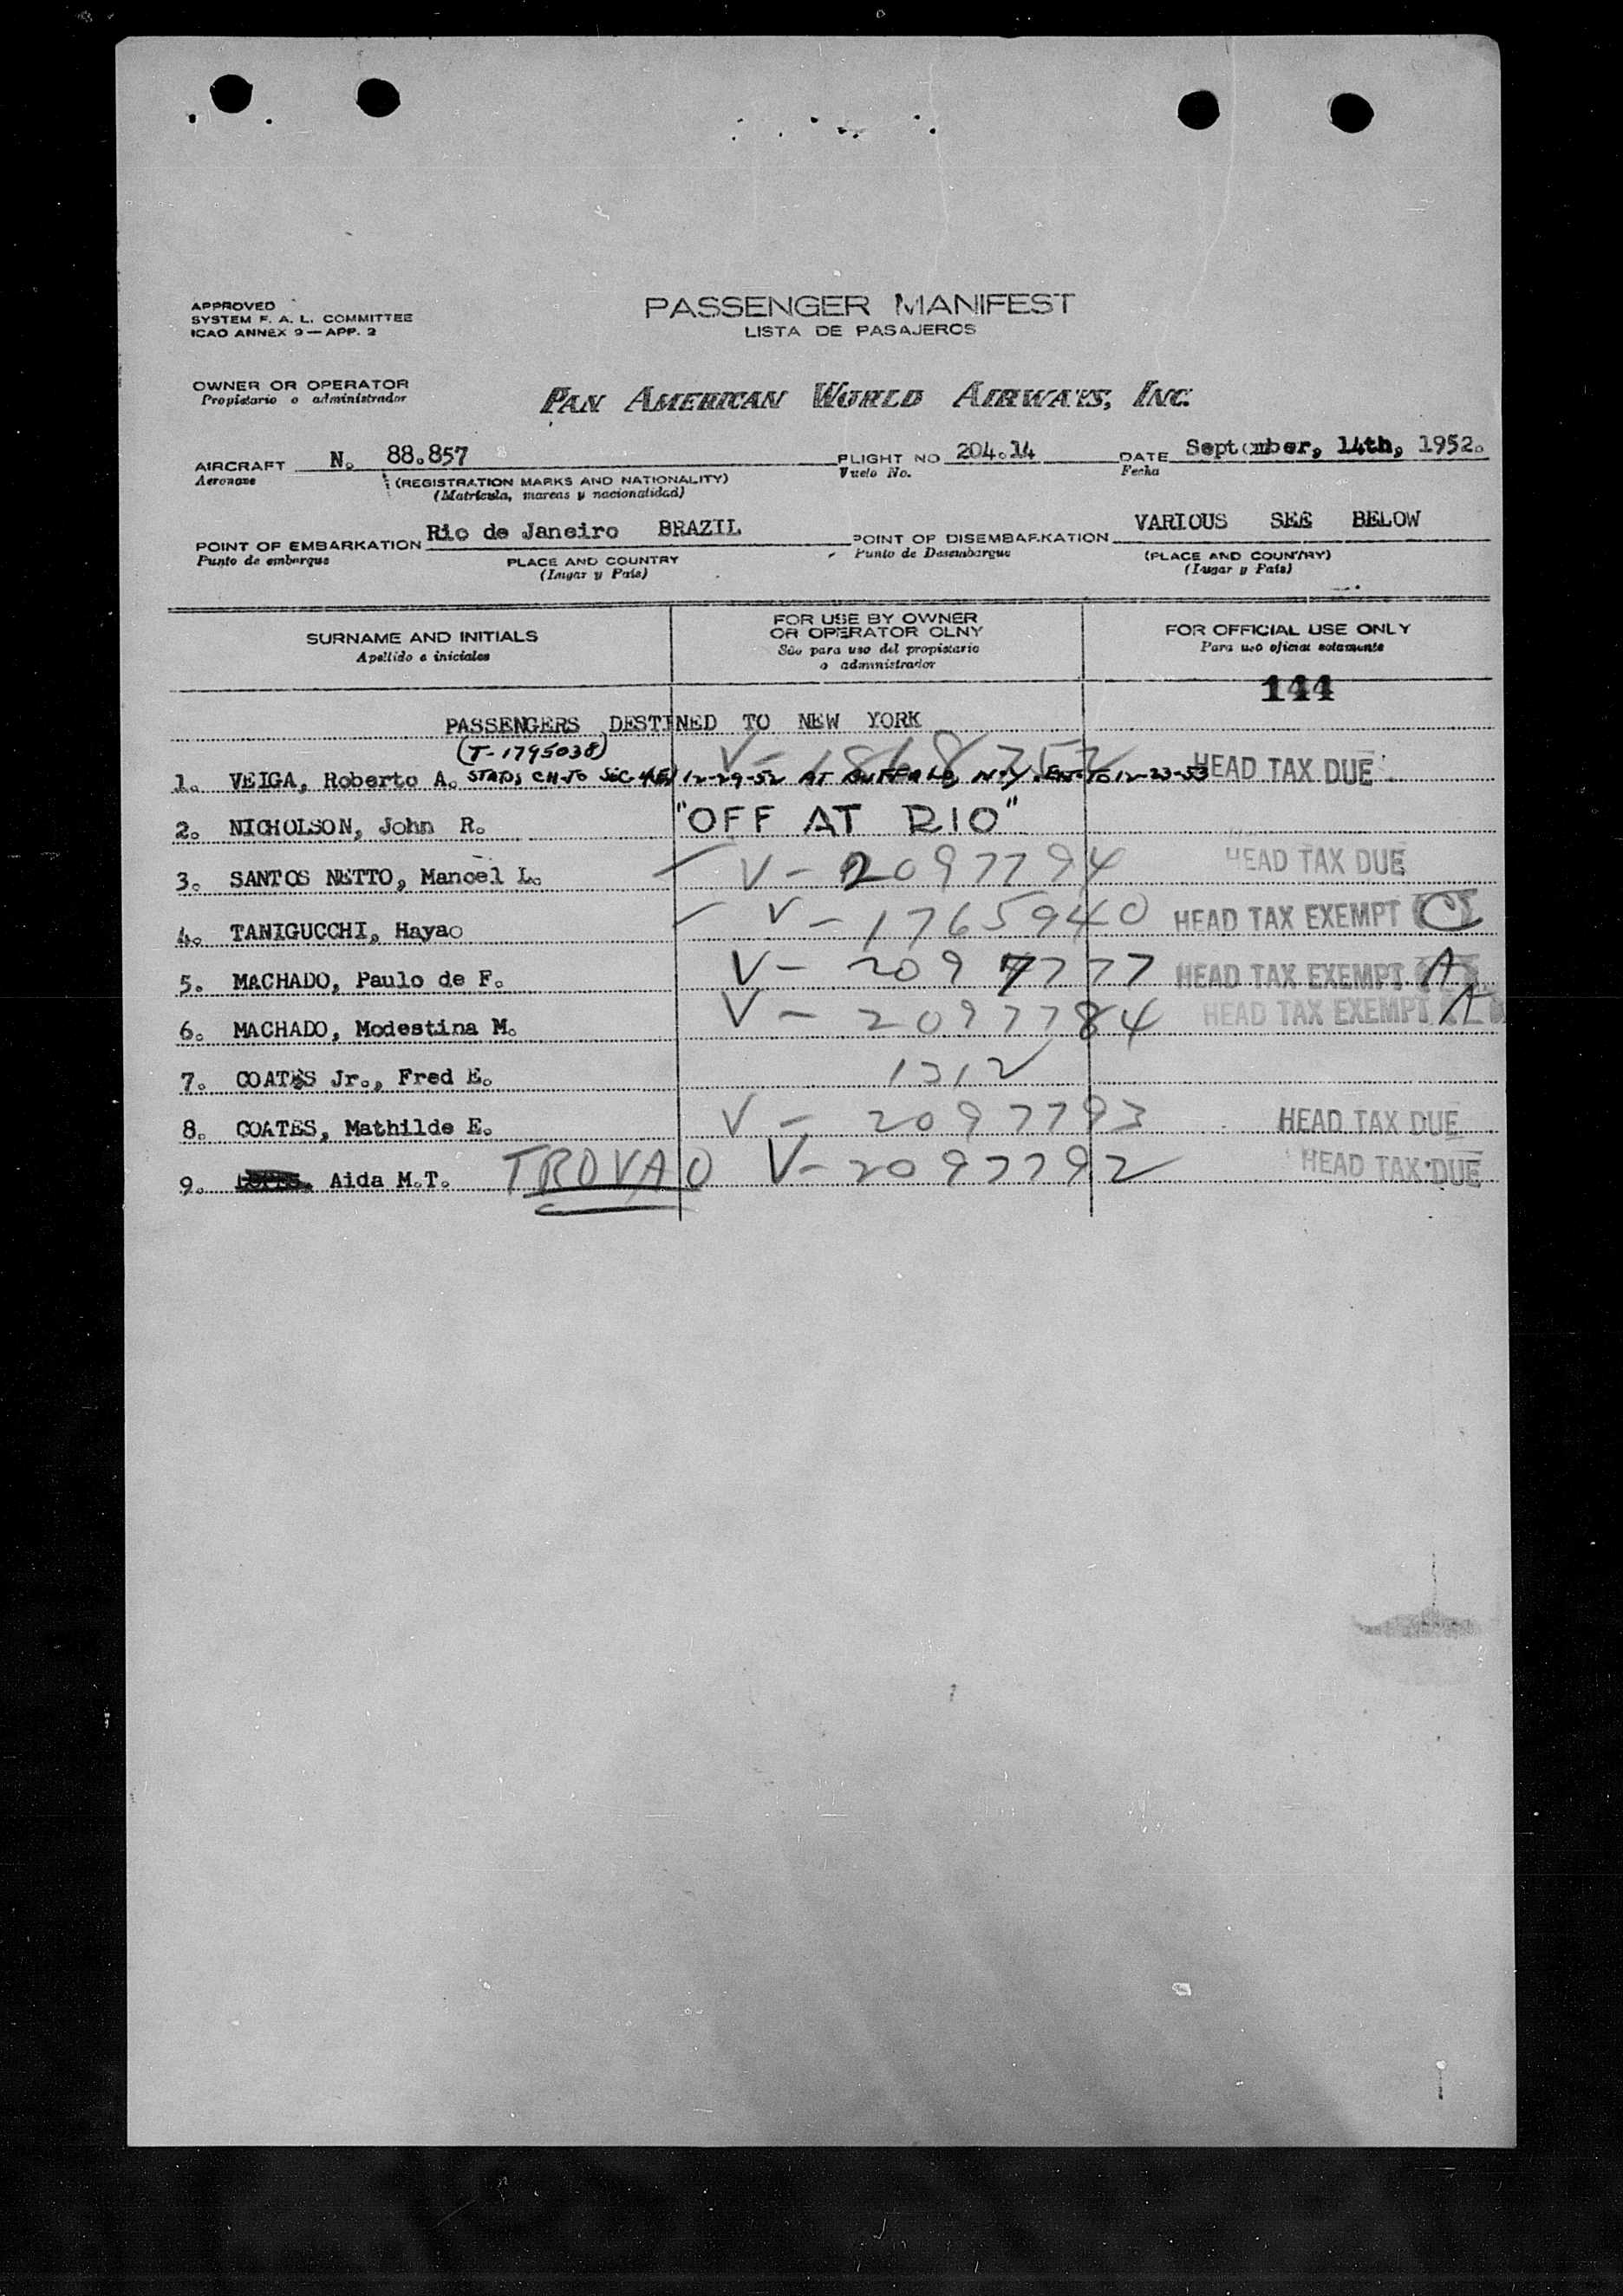 APPROVED
SYSTEM F. A. L. COMMITTEE
ICAO ANNEX 9 — APP. 2
PASSENGER MANIFEST
LISTA DE PASAJEROS
OWNER OR OPERATOR
Propietario o administrador
PAN AMERICAN WORLD AIRWAYS, INC.
AIRCRAFT N. 88.857 FLIGHT NO 204.14 DATE September, 14th, 1952.
Aeronave (REGISTRATION MARKS AND NATIONALITY) Vuelo No. Fecha
(Matrícula, marcas y nacionalidad)
POINT OF EMBARKATION Rio de Janeiro BRAZIL POINT OF DISEMBARKATION VARIOUS SEE BELOW
Punto de embarque PLACE AND COUNTRY Punto de Desembarque (PLACE AND COUNTRY)
(Lugar y País) (Lugar y País)
SURNAME AND INITIALS
Apellido e iniciales
FOR USE BY OWNER
OR OPERATOR OLNY
Sólo para uso del propietario
o administrador
FOR OFFICIAL USE ONLY
Para uso oficial solamente
144
PASSENGERS DESTINED TO NEW YORK
(T-1795038) V-1868752
1. VEIGA, Roberto A. 12-29-52 AT BUFFALO, N.Y. 12-23-53 HEAD TAX DUE
2. NICHOLSON, John R. "OFF AT RIO"
3. SANTOS NETTO, Manoel L. V-2097794 HEAD TAX DUE
4. TANIGUCCHI, Hayao V-1765940 HEAD TAX EXEMPT C
5. MACHADO, Paulo de F. V-2097777 HEAD TAX EXEMPT A
6. MACHADO, Modestina M. V-2097784 HEAD TAX EXEMPT A
7. COATES Jr., Fred E. 1312
8. COATES, Mathilde E. V-2097793 HEAD TAX DUE
9. Aida M.T. TROVAO V-2097792 HEAD TAX DUE